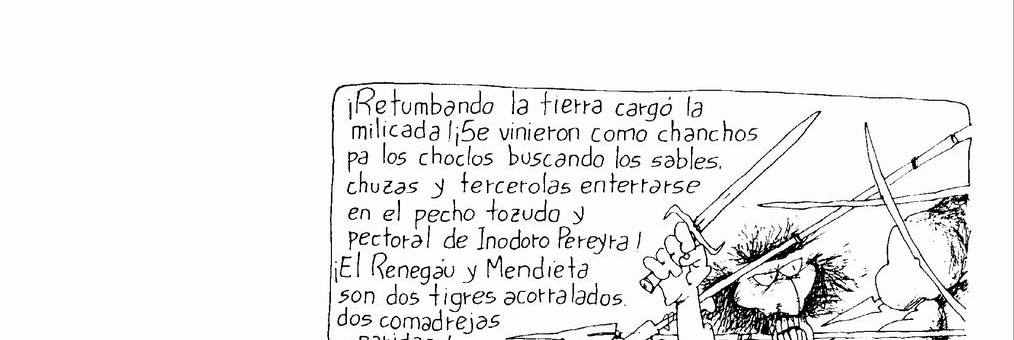 ¡Retumbando la tierra cargó la
milicada!¡Se vinieron como chanchos
pa los choclos buscando los sables,
chuzas y tercerolas enterrarse
en el pecho tozudo y
pectoral de Inodoro Pereyra!
¡El Renegáu y Mendieta
son dos tigres acorralados.
dos comadrejas